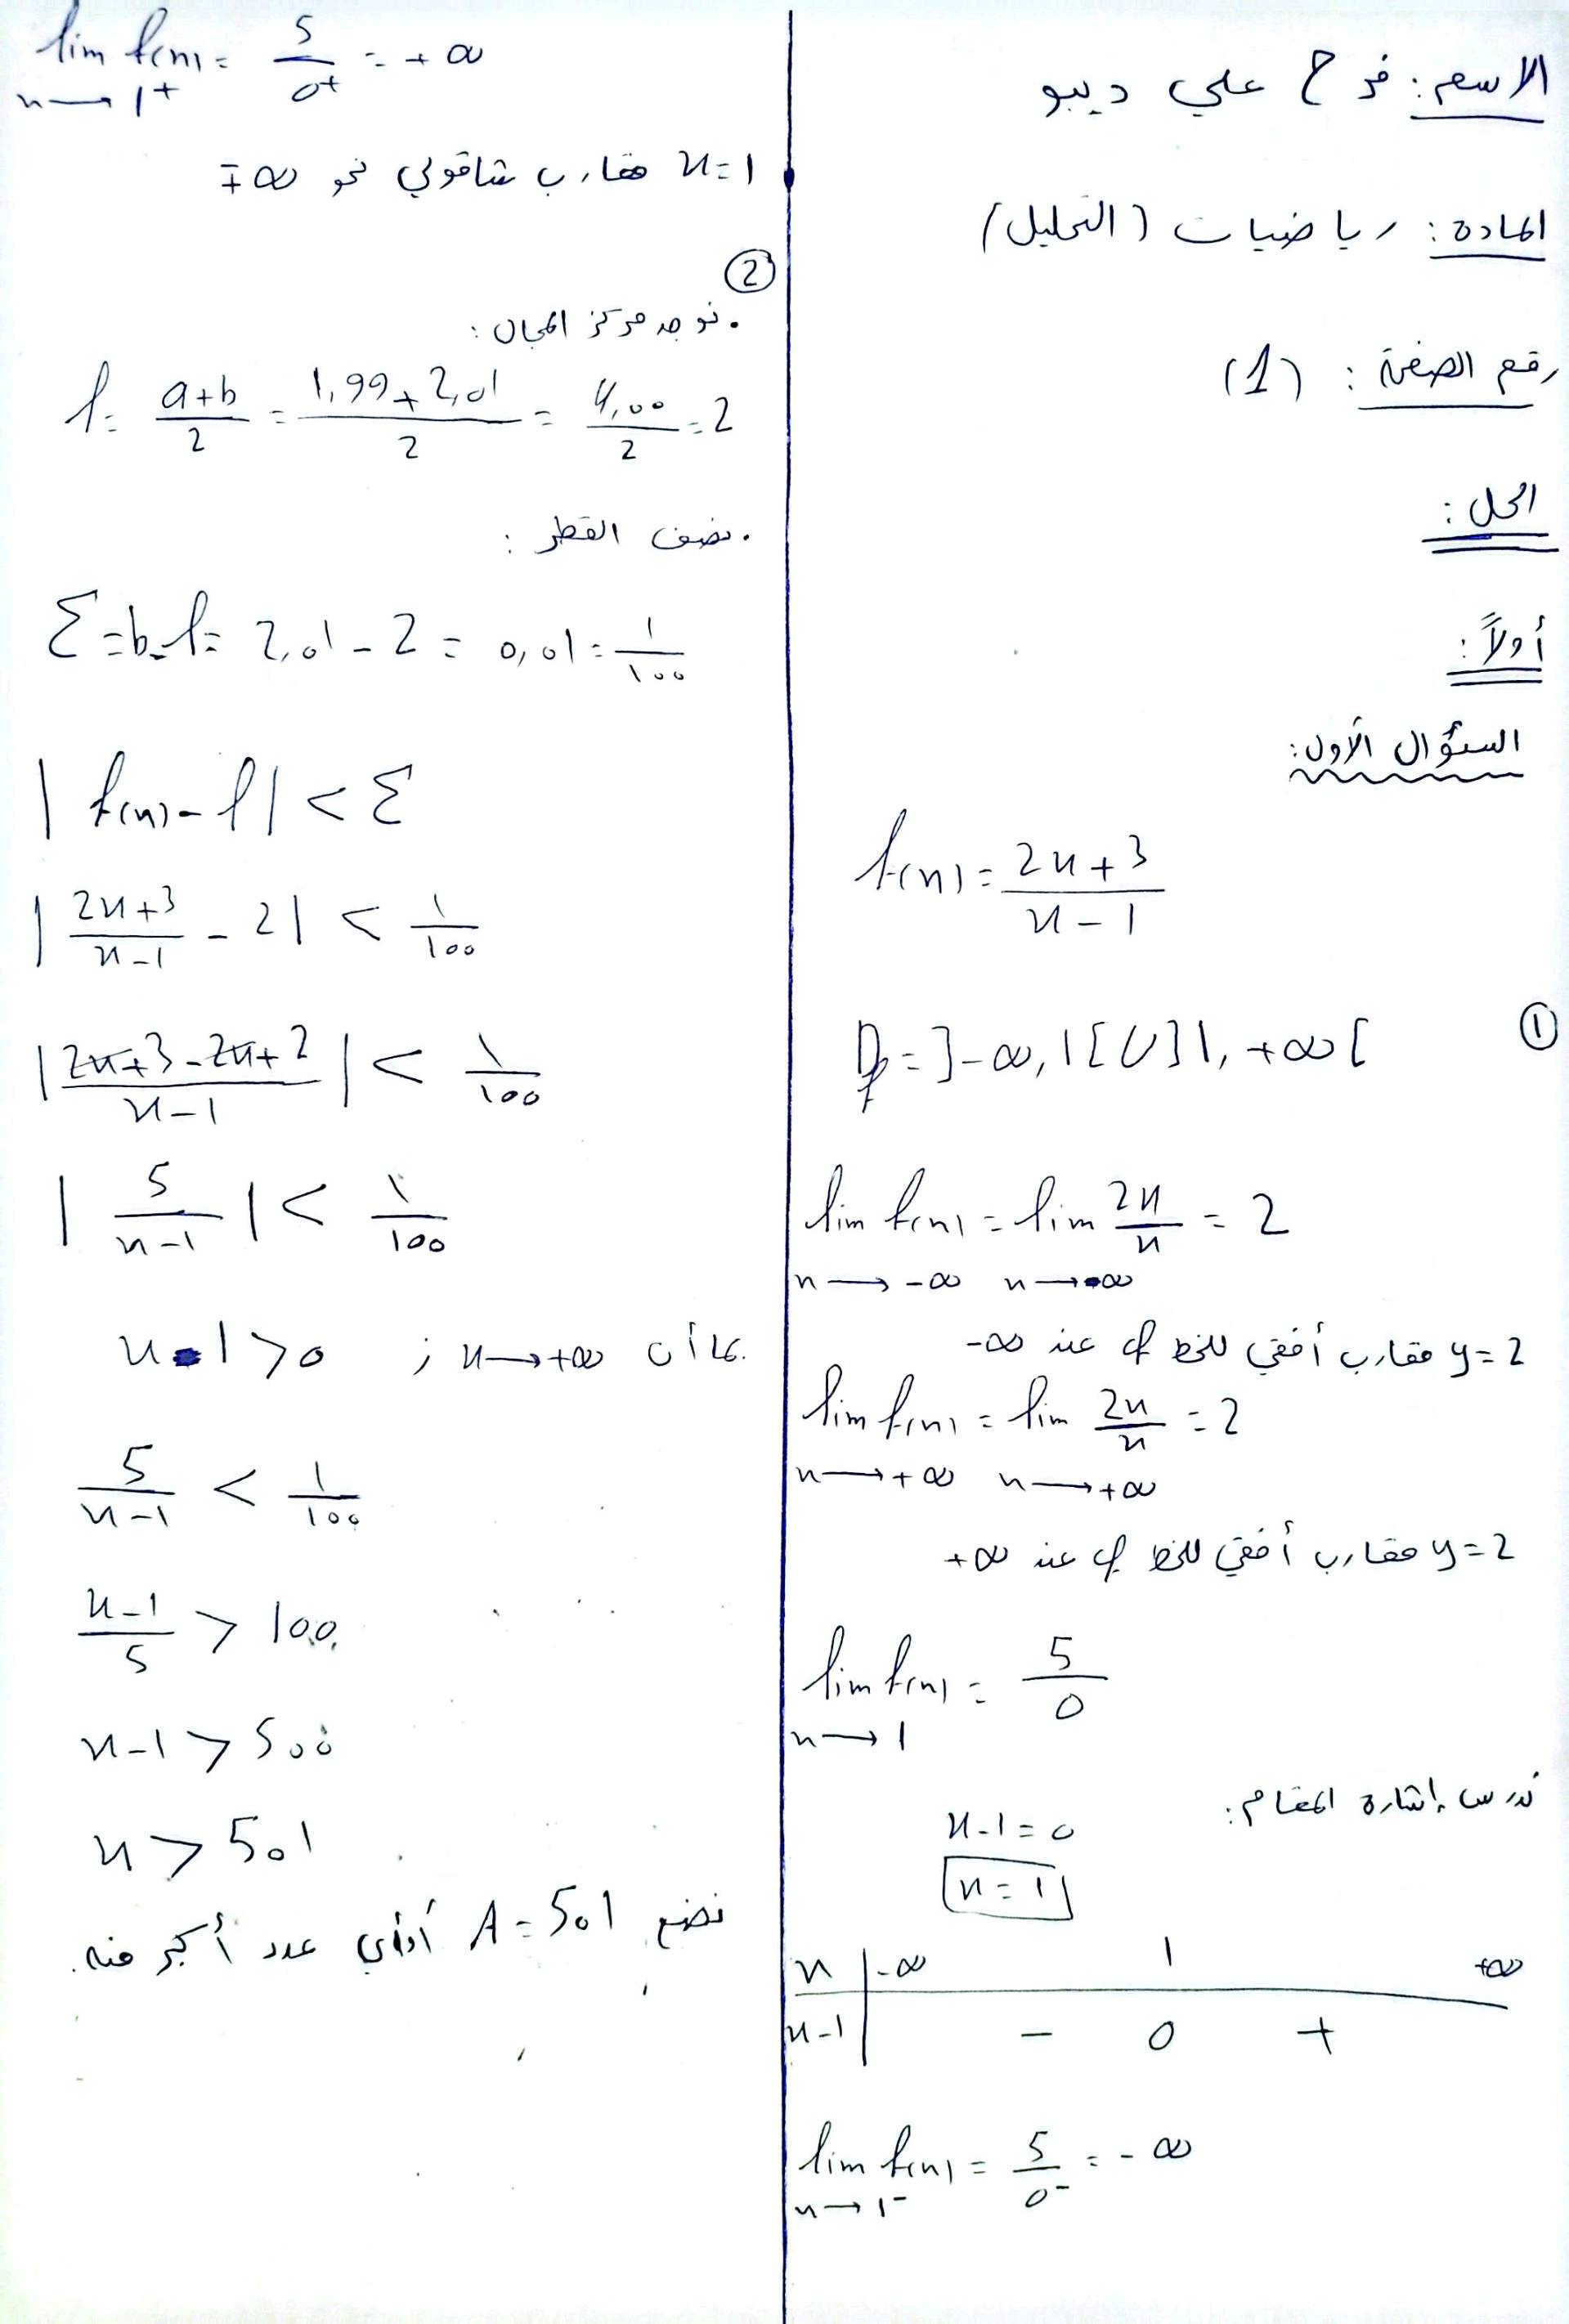 الاسم: فرح علي ديبو
المادة: رياضيات (التحليل)
رقم الصفحة: (1)
الحل:
أولاً:
السؤال الأول:
f(x) = (2x+3)/(x-1)
① Df = ]-∞, 1[ ∪ ]1, +∞[
lim f(x) = lim 2x/x = 2
x→-∞ x→-∞
y=2 مقارب أفقي للخط Cf عند -∞
lim f(x) = lim 2x/x = 2
x→+∞ x→+∞
y=2 مقارب أفقي للخط Cf عند +∞
lim f(x) = 5/0
x→1
ندرس إشارة المقام:
x-1=0
x=1
x | -∞ 1 +∞
x-1 | - 0 +
lim f(x) = 5/0⁻ = -∞
x→1⁻
lim f(x) = 5/0⁺ = +∞
x→1⁺
x=1 مقارب شاقولي نحو ∓∞
②
. نوجد مركز المجال:
l = (a+b)/2 = (1,99+2,01)/2 = 4,00/2 = 2
. نصف القطر:
ε = b-l = 2,01-2 = 0,01 = 1/100
|f(x)-l| < ε
|(2x+3)/(x-1) - 2| < 1/100
|(2x+3-2x+2)/(x-1)| < 1/100
|5/(x-1)| < 1/100
بما أن x→+∞ ; x-1>0
5/(x-1) < 1/100
(x-1)/5 > 100
x-1 > 500
x > 501
نضع A=501 أو أي عدد أكبر منه.